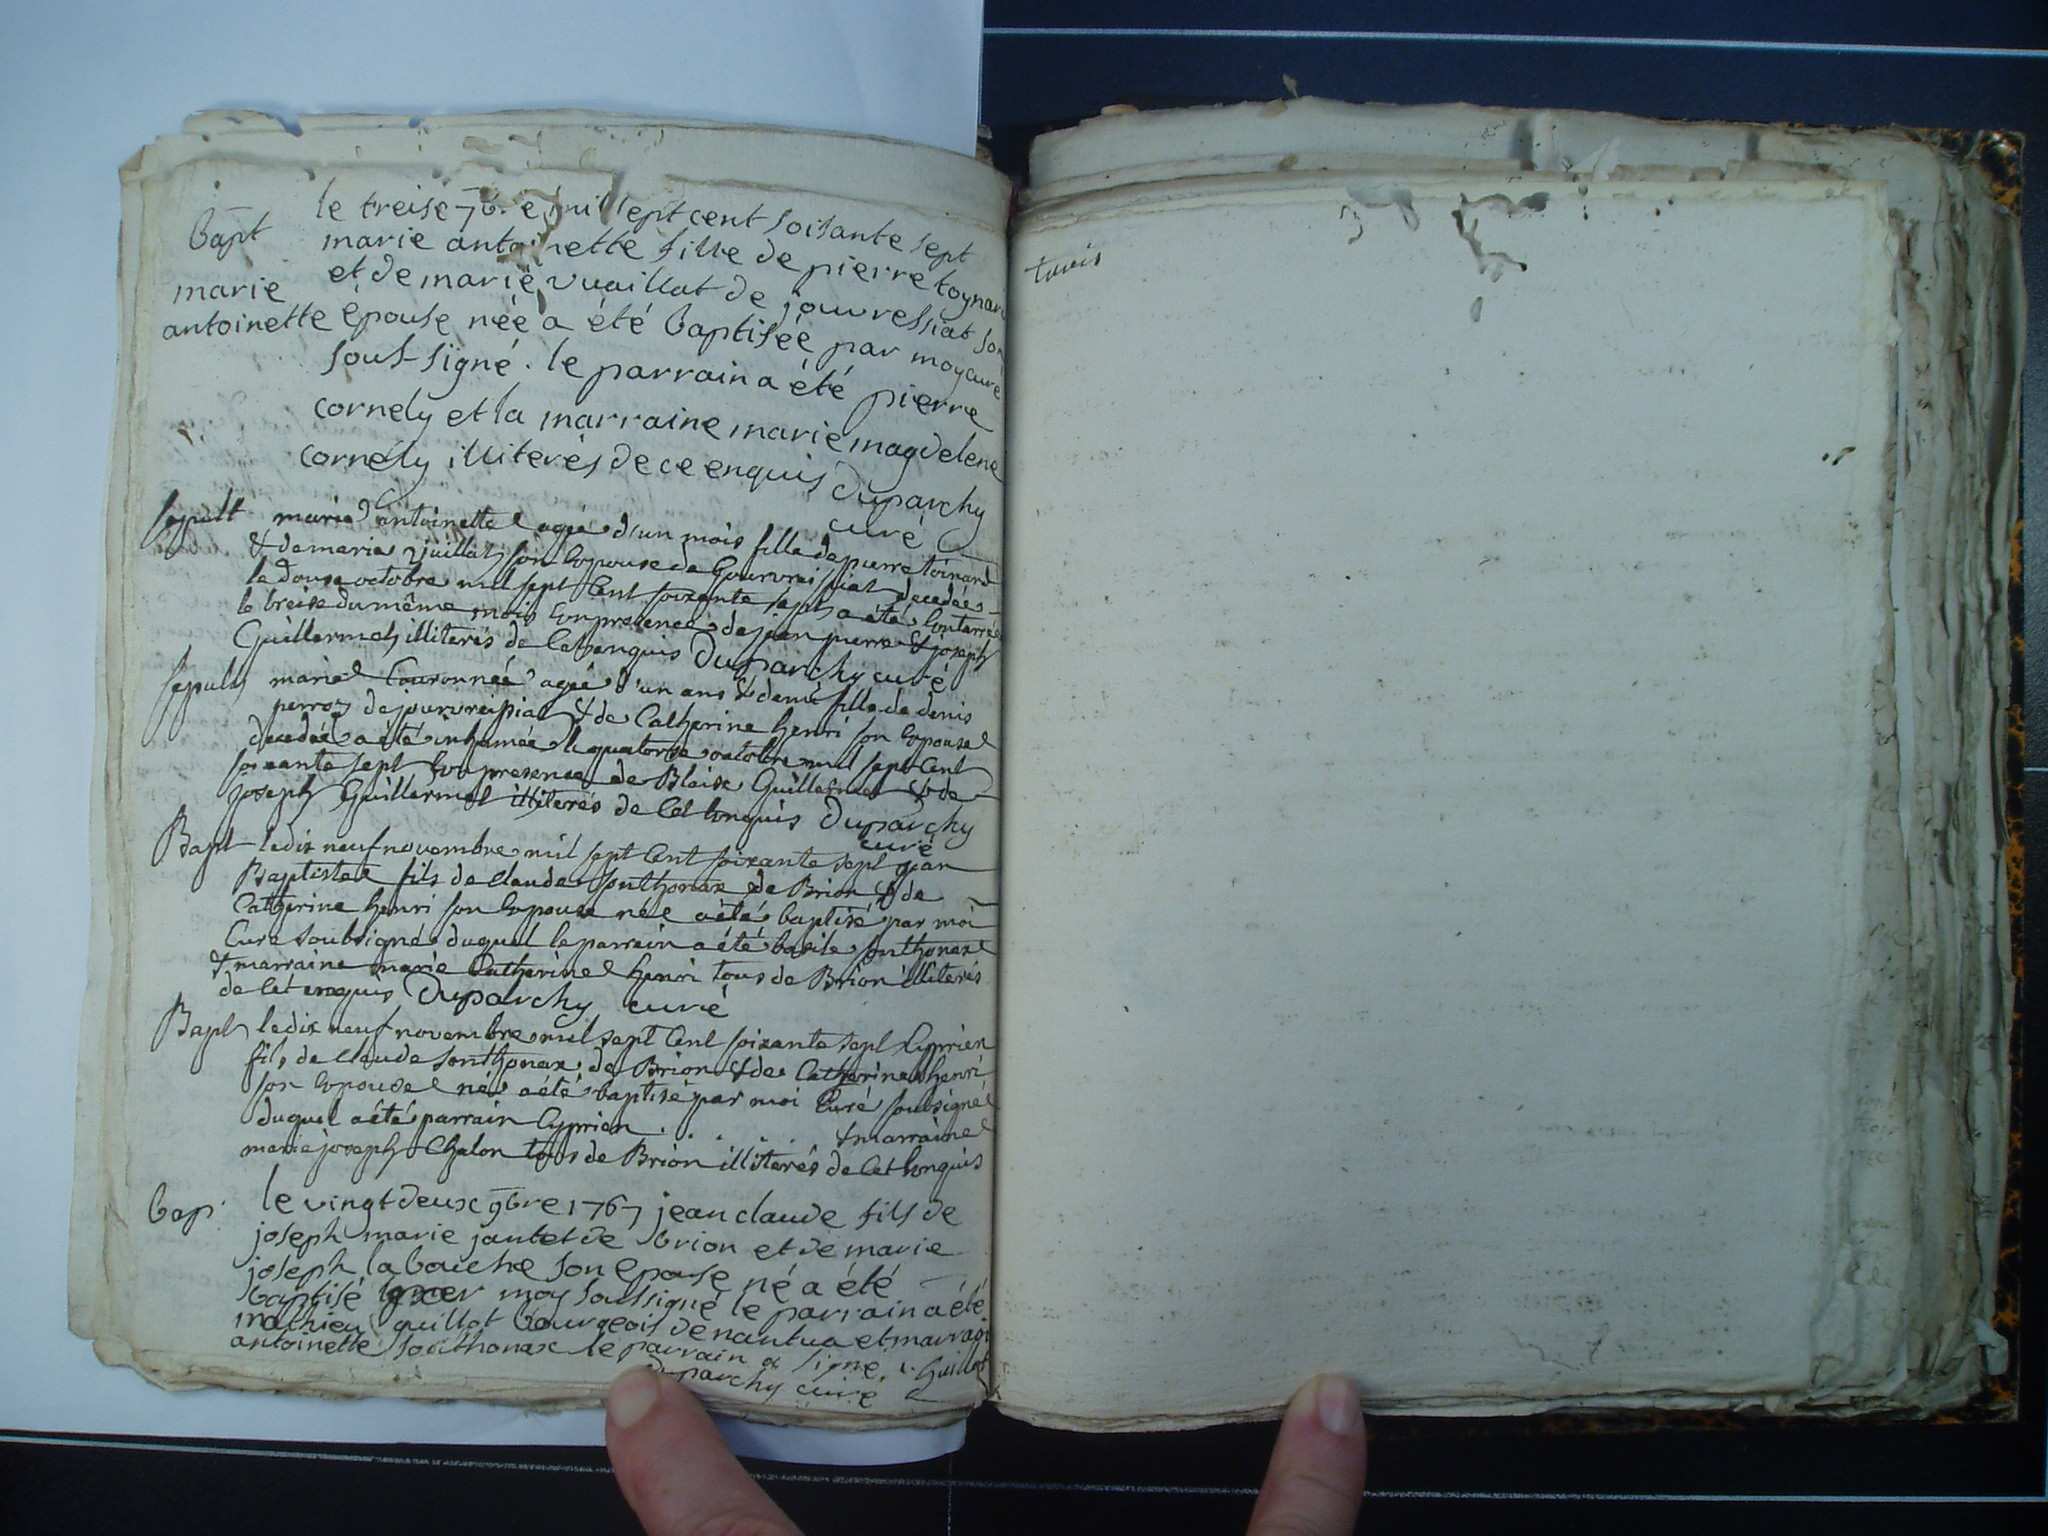 Bapt le treise 7bre mil sept cent soisante sept
marie antoinette fille de pierre toynard
marie et de marie vuaillat de jouvressiat son
antoinette epouse née a été baptisée par moy curé
sous-signé. le parrain a été pierre
cornely et la marraine marie magdelene
cornely illiterés de ce enquis Duparchy
curé
sepult marie antoinette agée d'un mois fille de pierre toinard
& de marie vuillat son Epouse de Gourvreissiat decedée
le douse octobre mil sept Cent soixante sept a été Enterrée
le treise du même mois En presence de jean pierre & joseph
Guillermet illiterés de Cet enquis Duparchy curé
sepult marie Couronnée agée d'un ans & demi fille de denis
perroz de jourvreissiat & de Catherine henri son Epouse
decedée a été inhumée le quatorse octobre mil sept Cent
soixante sept En presence de Blaise Guillermet & de
joseph Guillermet illiterés de Cet Enquis Duparchy
curé
Bapt le dix neuf novembre mil sept Cent soixante sept jean
Baptiste fils de Claude sonthonax de Brion & de
Catherine henri son Epouse née a été baptisé par moi
Curé soubsigné duquel le parrain a été basile sonthonax
& marraine marie Catherine henri tous de Brion illiterés
de Cet enquis Duparchy curé
Bapt le dix neuf novembre mil sept Cent soixante sept Cyprien
fils de Claude sonthonax de Brion & de Catherine henri
son Epouse ne a été baptisé par moi Curé soubsigné
duquel a été parrain Cyprien . . . . & marraine
marie joseph Chalon tous de Brion illiterés de Cet Enquis
bap. le vingt deux 9bre 1767 jean claude fils de
joseph marie jantet de brion et de marie
joseph labouche son epouse né a été
baptisé par moy soussigné le parrain a été
mathieu guillot bourgeois de nantua et marraine
antoinette sonthonax le parrain a signé. Guillot
Duparchy curé